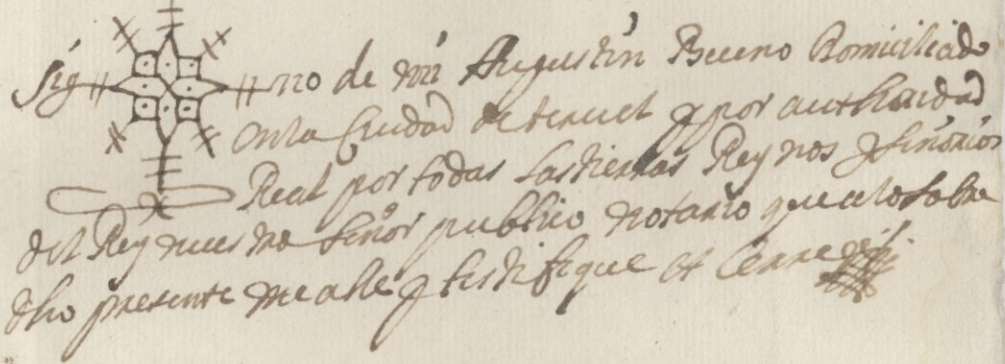 Sig no de mi Augustin Bueno Domiciliado
en la Ciudad de teruel y por authoridad
Real por todas las tierras Reynos y señorios
del Rey nuestro señor publico notario que a lo sobre
dho presente me alle y testifique et cerre